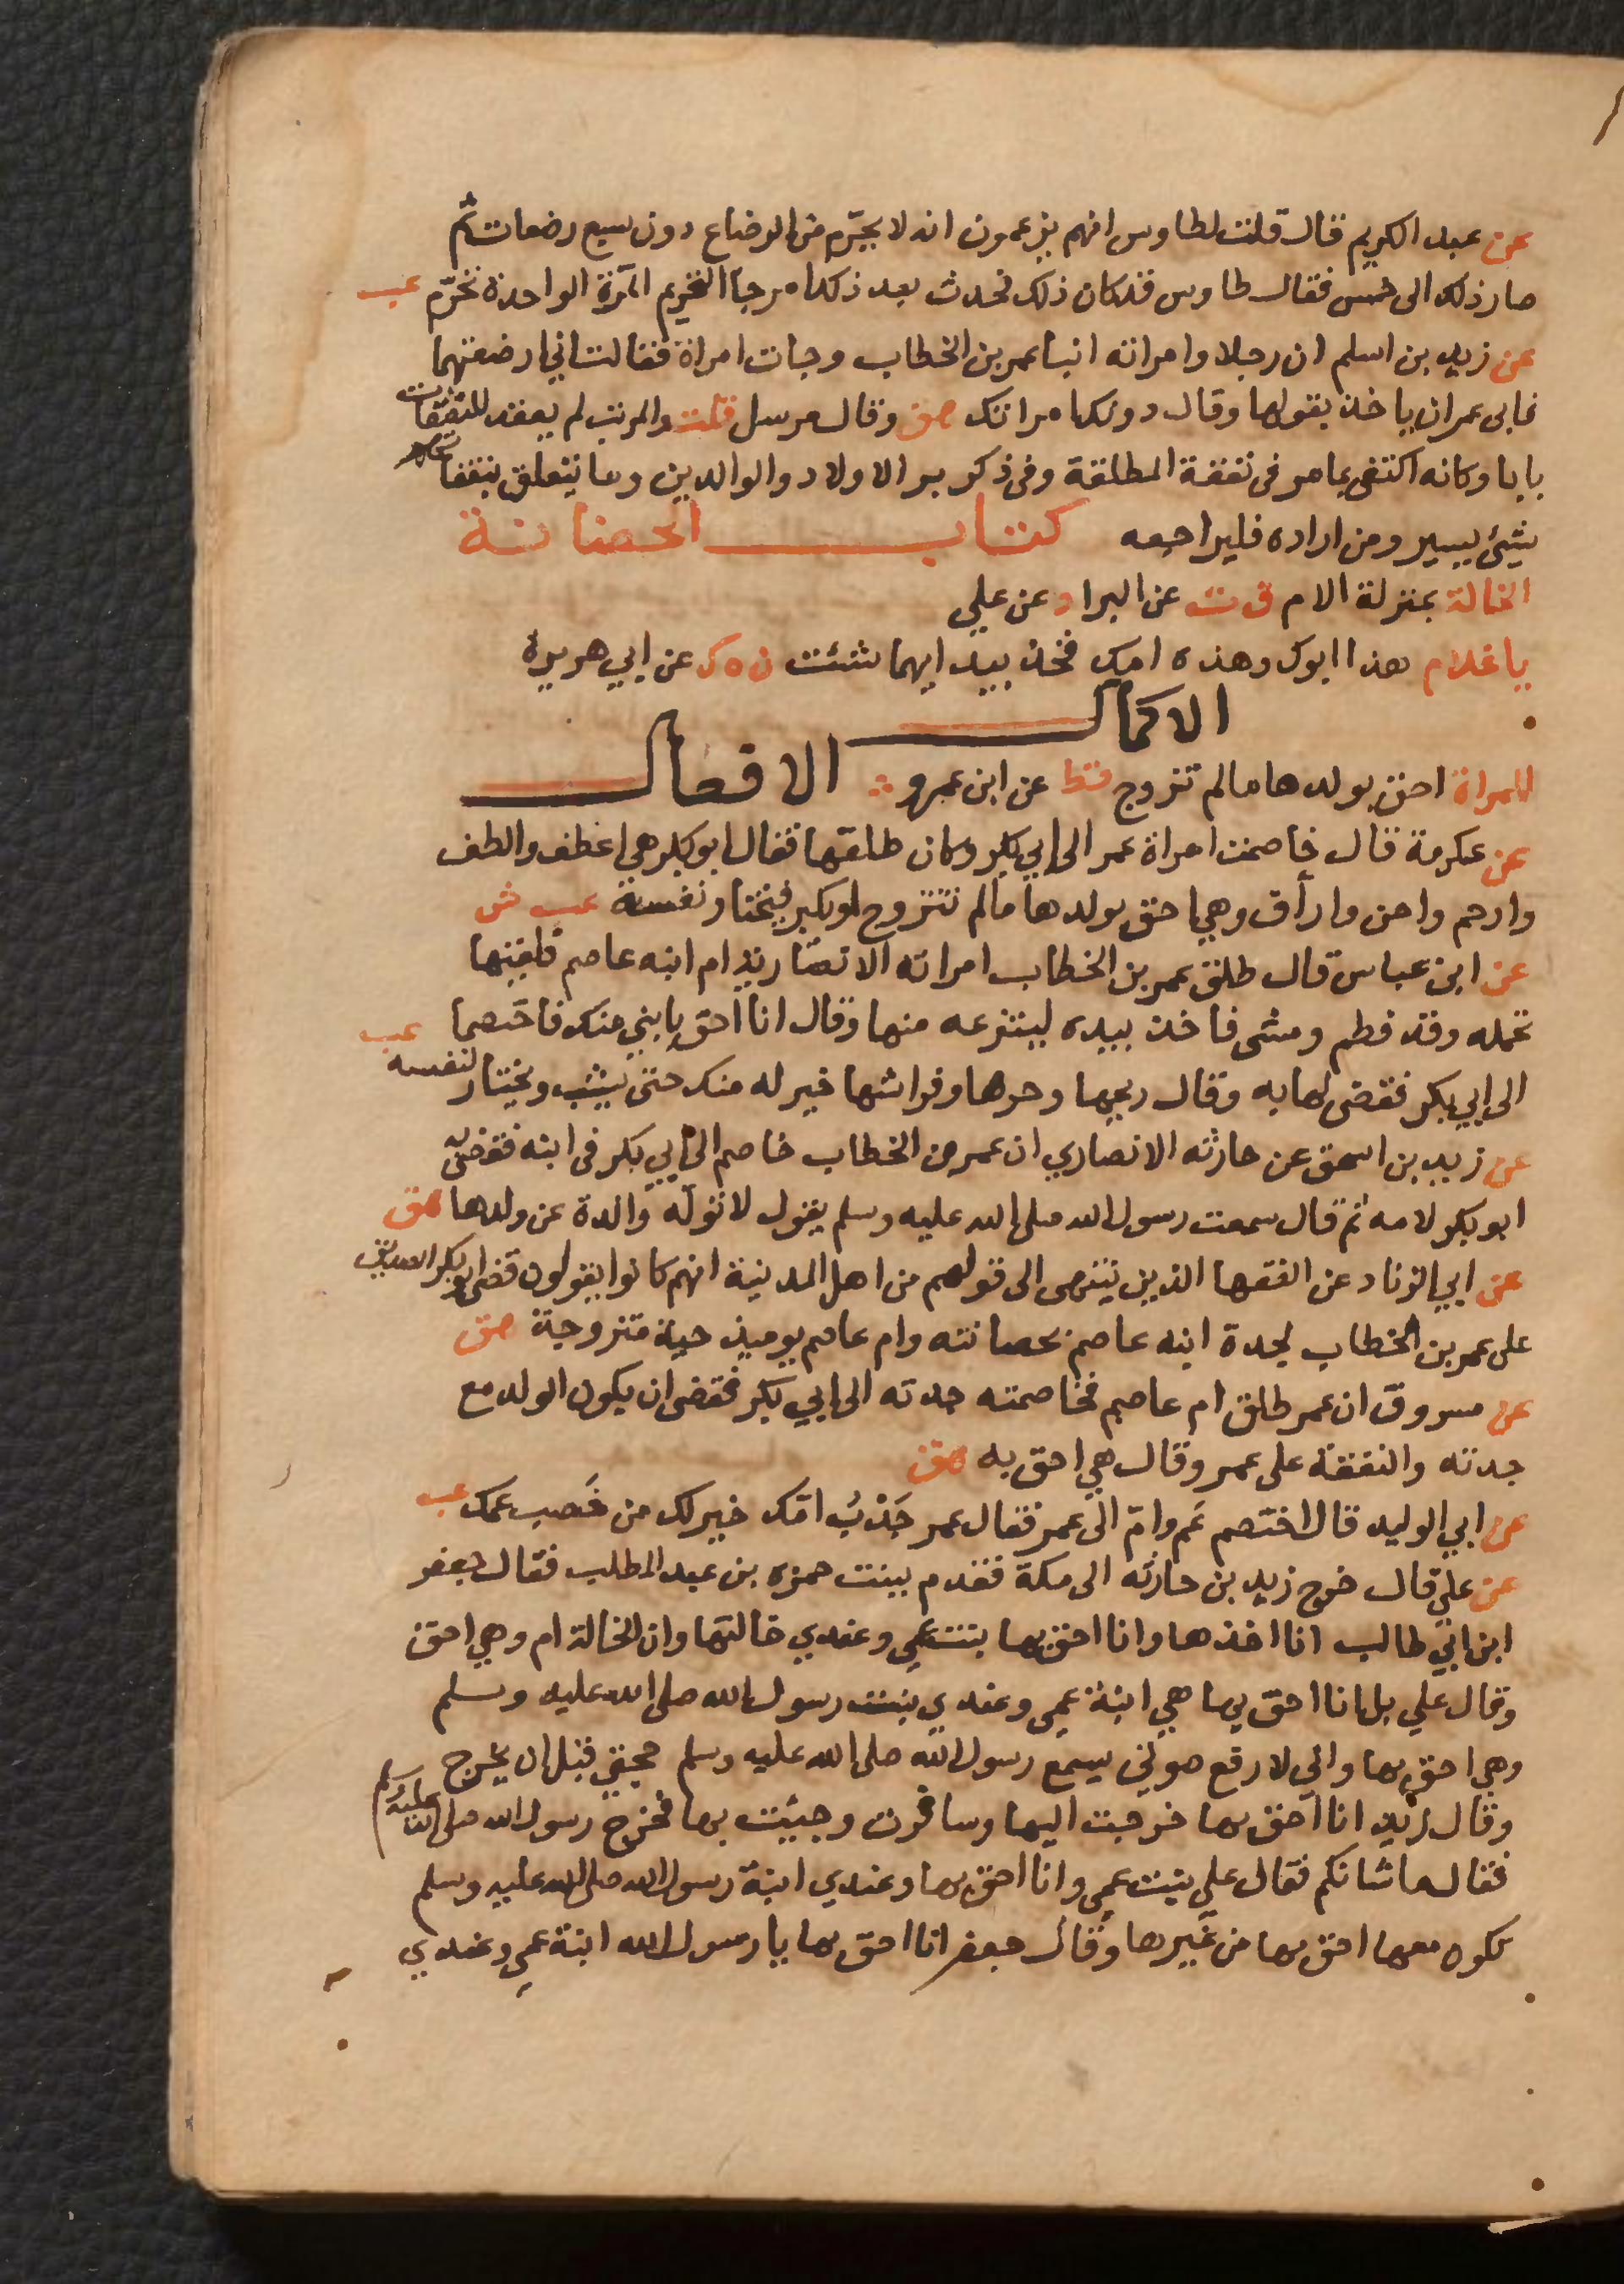 عن عبد الكريم قال قلت لطاوس انهم يزعمون انه لا يحرم من الرضاع دون سبع رضعات ثم
صار ذلك الى خمس فقال طاوس قد كان ذلك فحدث بعد ذلك امر جا التحريم المرة الواحدة تحرم عب
عن زيد بن اسلم ان رجلا وامراته اتيا عمر بن الخطاب وجات امراة فقالت اني ارضعتهما
فابى عمر ان ياخذ بقولها وقال دونك امراتك هق وقال مرسل قلت والمرتب لم يعقد للنفقات
بابا وكانه اكتفى بما مر في نفقة المطلقة وفي ذكر بر الاولاد والوالدين وما يتعلق بنفقاتهم
شيئ يسير ومن اراده فليراجعه كتاب الحضانة
الخالة بمنزلة الام ق ت عن البرا د عن علي
يا غلام هذا ابوك وهذه امك فخذ بيد ايهما شئت ن ه ك عن ابي هريرة
الاكمال
المراة احق بولدها مالم تزوج قط عن ابن عمرو الافعال
عن عكرمة قال خاصمت امراة عمر الى ابي بكر وكان طلقها فقال ابو بكر هي اعطف والطف
وارحم واحن وارأف وهي احق بولدها مالم تتزوج او يكبر فيختار نفسه عب ش
عن ابن عباس قال طلق عمر بن الخطاب امراته الانصارية ام ابنه عاصم فلقيتها
تحمله وقد فطم ومشى فاخذ بيده لينتزعه منها وقال انا احق بابني منك فاختصما عب
الى ابي بكر فقضى لها به وقال ريحها وحرها وفراشها خير له منك حتى يشب ويختار لنفسه
عن زيد بن اسحق عن حارثه الانصاري ان عمر بن الخطاب خاصم الى ابي بكر في ابنه فقضى به
ابو بكر لامه ثم قال سمعت رسول الله صلى الله عليه وسلم يقول لا توله والدة عن ولدها هق
عن ابي الزناد عن الفقها الذين ينتهى الى قولهم من اهل المدينة انهم كانوا يقولون قضى ابو بكر الصديق
على عمر بن الخطاب لجدة ابنه عاصم بحضانته وام عاصم يوميذ حية متزوجة هق
عن مسروق ان عمر طلق ام عاصم فخاصمته جدته الى ابي بكر فقضى ان يكون الولد مع
جدته والنفقة على عمر وقال هي احق به هق
عن ابي الوليد قال اختصم عم وام الى عمر فقال عمر جدب امك خير لك من خصب عمك عب
عن علي قال خرج زيد بن حارثه الى مكة فقدم ببنت حمزه بن عبد المطلب فقال جعفر
ابن ابي طالب انا اخذها وانا احق بها بنت عمي وعندي خالتها وان الخالة ام وهي احق
وقال علي بل انا احق بها هي ابنة عمي وعندي بنت رسول الله صلى الله عليه وسلم
وهي احق بها واني لارفع صوتي يسمع رسول الله صلى الله عليه وسلم حجتي قبل ان يخرج
وقال زيد انا احق بها خرجت اليها وسافرت وجيئت بها فخرج رسول الله صلى الله عليه وسلم
فقال ما شانكم فقال علي بنت عمي وانا احق بها وعندي ابنة رسول الله صلى الله عليه وسلم
تكون معها احق بها من غيرها وقال جعفر انا احق بها يا رسول الله ابنة عمي وعندي